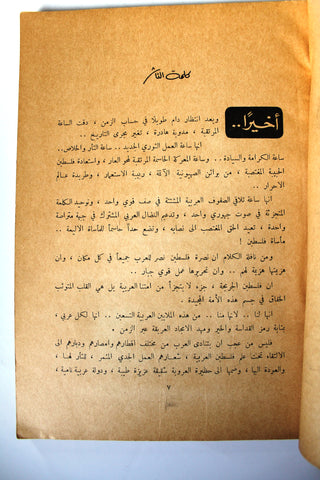 كلمة الناشر
أخيرًا ..
وبعد انتظار دام طويلًا في حساب الزمن ، دقت الساعة
المرتقبة ، مدوية هادرة ، تغير مجرى التاريخ ..
انها ساعة العمل الثوري الجديد .. ساعة الثأر والخلاص ..
ساعة الكرامة والسيادة .. وساعة المعركة الحاسمة المرتقبة لمحو العار ، واستعادة فلسطين
الحبيبة المغتصبة ، من براثن الصهيونية الآثمة ، ربيبة الاستعمار ، وطريدة عالم
الاحرار ..
انها ساعة تلاقي الصفوف العربية المشتتة في صف قوي واحد ، وتوحيد الكلمة
المتجزئة في صوت جهوري واحد ، وتدعيم النضال العربي المشترك في جبهة متراصة
واحدة ، تعيد الحق المغتصب الى نصابه ، وتضع حداً حاسماً للمأساة الاليمة ..
مأساة فلسطين !
ومن نافلة الكلام ان نصرة فلسطين نصر للعرب جميعاً في كل مكان ، وان
هزيمتها هزيمة لهم .. وان تحريرها عمل قومي جبار ..
ان فلسطين الجريحة ، جزء لا يتجزأ من امتنا العربية بل هي القلب المتوثب
الخفاق في جسم هذه الأمة المجيدة .
انها لنا .. لانها منا .. من هذه الملايين العربية التسعين .. انها لكل عربي ،
بمثابة رمز القداسة والخير ومهد الاتحاد العريقة عبر الزمن ..
فليس من عجب ان يتنادى العرب من مختلف اقطارهم وامصارهم وديارهم الى
الالتقاء تحت علم فلسطين العربية ، شعارهم العمل الجدي المثمر ، للثأر لها ،
والعودة اليها ، وضمها الى حظيرة العروبة شقيقة عزيزة طيبة ، ودولة عربية نامية
٧